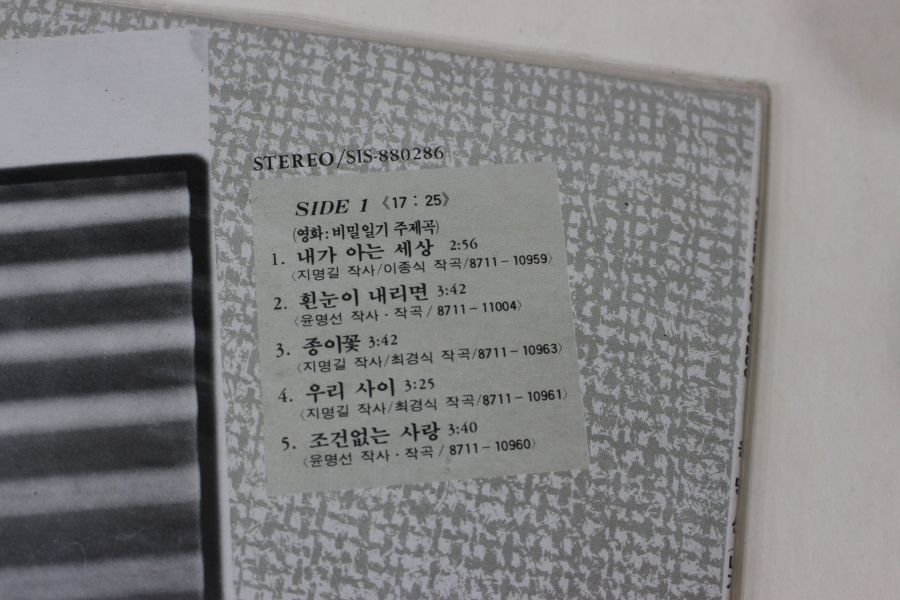 STEREO/SIS-880286
SIDE 1 《17 : 25》
(영화:비밀일기 주제곡)
1. 내가 아는 세상 2:56
〈지명길 작사/이종식 작곡/8711-10959〉
2. 흰눈이 내리면 3:42
〈윤명선 작사·작곡/8711-11004〉
3. 종이꽃 3:42
〈지명길 작사/최경식 작곡/8711-10963〉
4. 우리 사이 3:25
〈지명길 작사/최경식 작곡/8711-10961〉
5. 조건없는 사랑 3:40
〈윤명선 작사·작곡/8711-10960〉